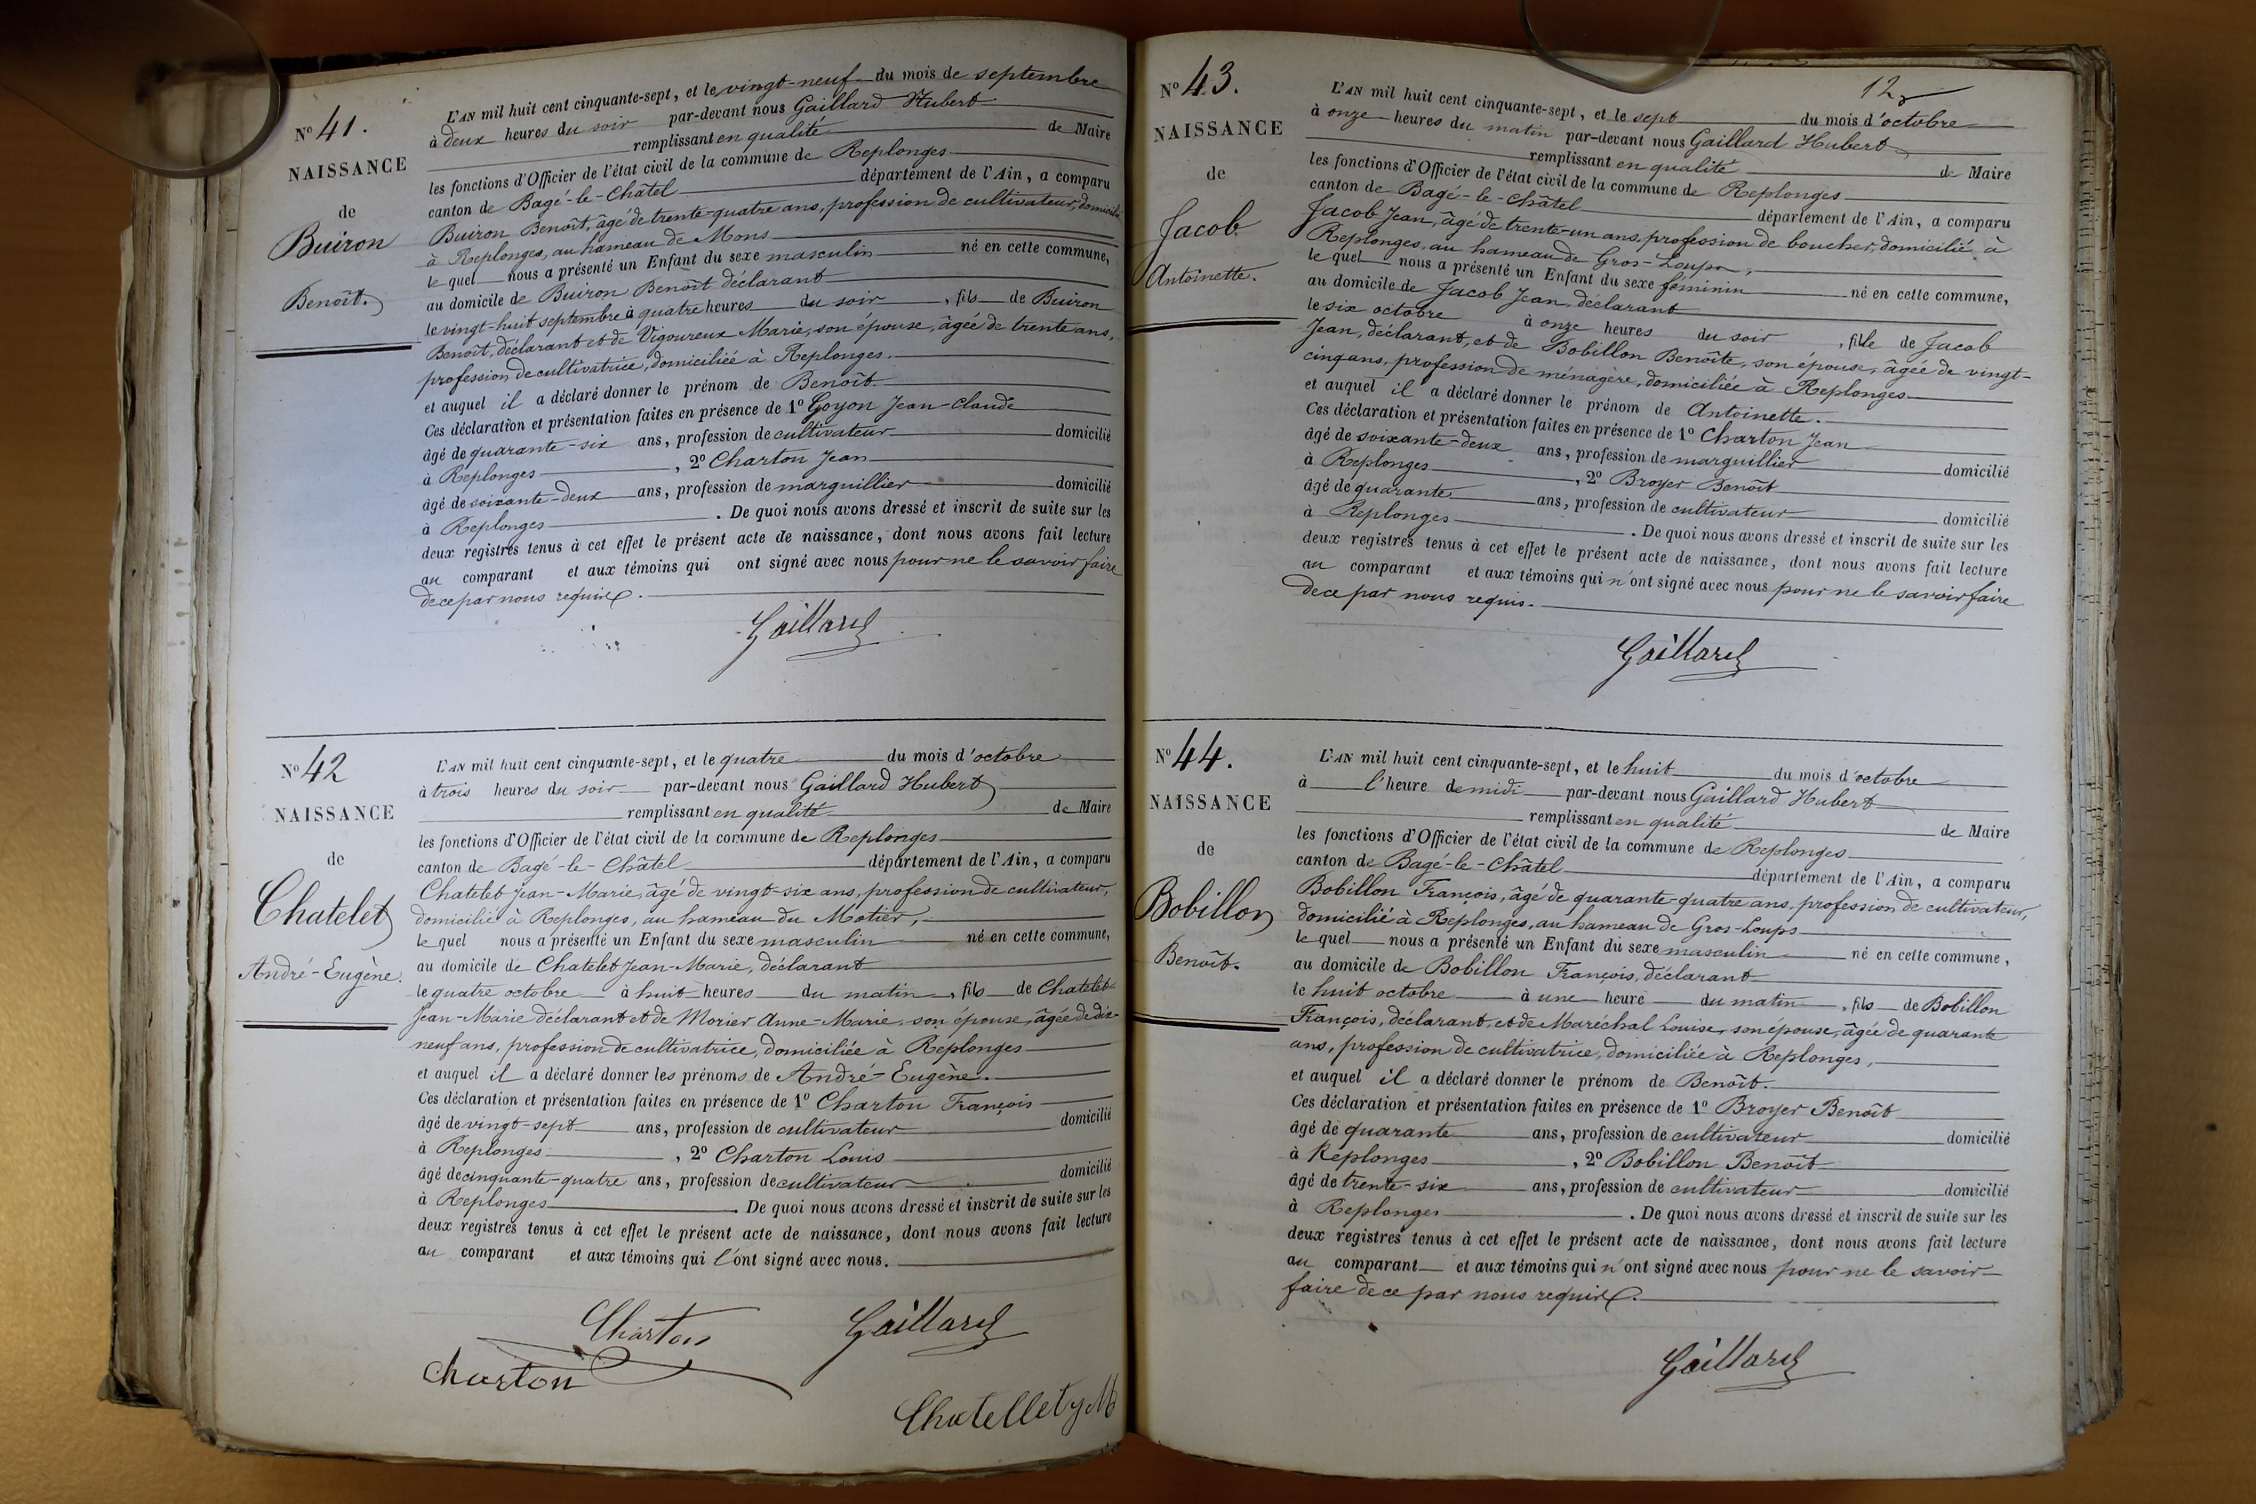 N° 41.
NAISSANCE
de
Buiron
Benoît.
L'AN mil huit cent cinquante-sept, et le vingt-neuf du mois de septembre
à deux heures du soir par-devant nous Gaillard Hubert
remplissant en qualité de Maire
les fonctions d'Officier de l'état civil de la commune de Replonges
canton de Bagé-le-Châtel département de l'Ain, a comparu
Buiron Benoît, âgé de trente-quatre ans, profession de cultivateur, domicilié
à Replonges, au hameau de Mons
le quel nous a présenté un Enfant du sexe masculin né en cette commune,
au domicile de Buiron Benoît déclarant
le vingt-huit septembre à quatre heures du soir, fils de Buiron
Benoît, déclarant et de Vigoureux Marie, son épouse, âgée de trente ans,
profession de cultivatrice, domiciliée à Replonges.
et auquel il a déclaré donner le prénom de Benoît
Ces déclaration et présentation faites en présence de 1° Goyon Jean-Claude
âgé de quarante-six ans, profession de cultivateur domicilié
à Replonges, 2° Charton Jean
âgé de soixante-deux ans, profession de marguillier domicilié
à Replonges. De quoi nous avons dressé et inscrit de suite sur les
deux registres tenus à cet effet le présent acte de naissance, dont nous avons fait lecture
au comparant et aux témoins qui ont signé avec nous pour ne le savoir faire
de ce par nous requis.
Gaillard
N° 42
NAISSANCE
de
Chatelet
André-Eugène.
L'AN mil huit cent cinquante-sept, et le quatre du mois d'octobre
à trois heures du soir par-devant nous Gaillard Hubert
remplissant en qualité de Maire
les fonctions d'Officier de l'état civil de la commune de Replonges
canton de Bagé-le-Châtel département de l'Ain, a comparu
Chatelet Jean-Marie, âgé de vingt-six ans, profession de cultivateur,
domicilié à Replonges, au hameau du Motier,
le quel nous a présenté un Enfant du sexe masculin né en cette commune,
au domicile de Chatelet Jean-Marie, déclarant
le quatre octobre à huit heures du matin, fils de Chatelet
Jean-Marie déclarant et de Morier Anne-Marie, son épouse, âgée de dix-
neuf ans, profession de cultivatrice, domiciliée à Replonges
et auquel il a déclaré donner les prénoms de André-Eugène.
Ces déclaration et présentation faites en présence de 1° Charton François
âgé de vingt-sept ans, profession de cultivateur domicilié
à Replonges, 2° Charton Louis
âgé de cinquante-quatre ans, profession de cultivateur domicilié
à Replonges. De quoi nous avons dressé et inscrit de suite sur les
deux registres tenus à cet effet le présent acte de naissance, dont nous avons fait lecture
au comparant et aux témoins qui l'ont signé avec nous.
Charton Gaillard
charton
Chatellet J M
12
N° 43.
NAISSANCE
de
Jacob
Antoinette.
L'AN mil huit cent cinquante-sept, et le sept du mois d'octobre
à onze heures du matin par-devant nous Gaillard Hubert
remplissant en qualité de Maire
les fonctions d'Officier de l'état civil de la commune de Replonges
canton de Bagé-le-Châtel département de l'Ain, a comparu
Jacob Jean, âgé de trente-un ans, profession de boucher, domicilié à
Replonges, au hameau de Gros-Loups,
le quel nous a présenté un Enfant du sexe féminin né en cette commune,
au domicile de Jacob Jean, déclarant
le six octobre à onze heures du soir, fille de Jacob
Jean, déclarant, et de Bobillon Benoîte, son épouse, âgée de vingt-
cinq ans, profession de ménagère, domiciliée à Replonges
et auquel il a déclaré donner le prénom de Antoinette.
Ces déclaration et présentation faites en présence de 1° Charton Jean
âgé de soixante-deux ans, profession de marguillier domicilié
à Replonges, 2° Broyer Benoît
âgé de quarante ans, profession de cultivateur domicilié
à Replonges. De quoi nous avons dressé et inscrit de suite sur les
deux registres tenus à cet effet le présent acte de naissance, dont nous avons fait lecture
au comparant et aux témoins qui n'ont signé avec nous pour ne le savoir faire
de ce par nous requis.
Gaillard
N° 44.
NAISSANCE
de
Bobillon
Benoît.
L'AN mil huit cent cinquante-sept, et le huit du mois d'octobre
à l'heure de midi par-devant nous Gaillard Hubert
remplissant en qualité de Maire
les fonctions d'Officier de l'état civil de la commune de Replonges
canton de Bagé-le-Châtel département de l'Ain, a comparu
Bobillon François, âgé de quarante-quatre ans, profession de cultivateur,
domicilié à Replonges, au hameau de Gros-Loups
le quel nous a présenté un Enfant du sexe masculin né en cette commune,
au domicile de Bobillon François, déclarant
le huit octobre à une heure du matin, fils de Bobillon
François, déclarant, et de Maréchal Louise, son épouse, âgée de quarante
ans, profession de cultivatrice, domiciliée à Replonges,
et auquel il a déclaré donner le prénom de Benoît.
Ces déclaration et présentation faites en présence de 1° Broyer Benoît
âgé de quarante ans, profession de cultivateur domicilié
à Replonges, 2° Bobillon Benoît
âgé de trente-six ans, profession de cultivateur domicilié
à Replonges. De quoi nous avons dressé et inscrit de suite sur les
deux registres tenus à cet effet le présent acte de naissance, dont nous avons fait lecture
au comparant et aux témoins qui n'ont signé avec nous pour ne le savoir
faire de ce par nous requis.
Gaillard